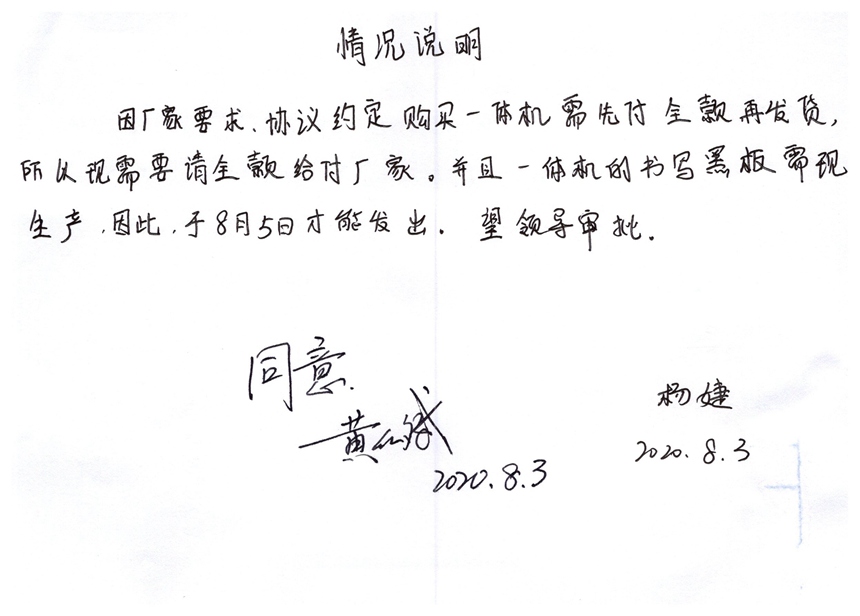 情况说明
因厂家要求、协议约定购买一体机需先付全款再发货，
所以现需要请全款给付厂家。并且一体机的书写黑板需现
生产，因此，于8月5日才能发出。望领导审批。
同意.
黄
杨婕
2020.8.3
2020.8.3